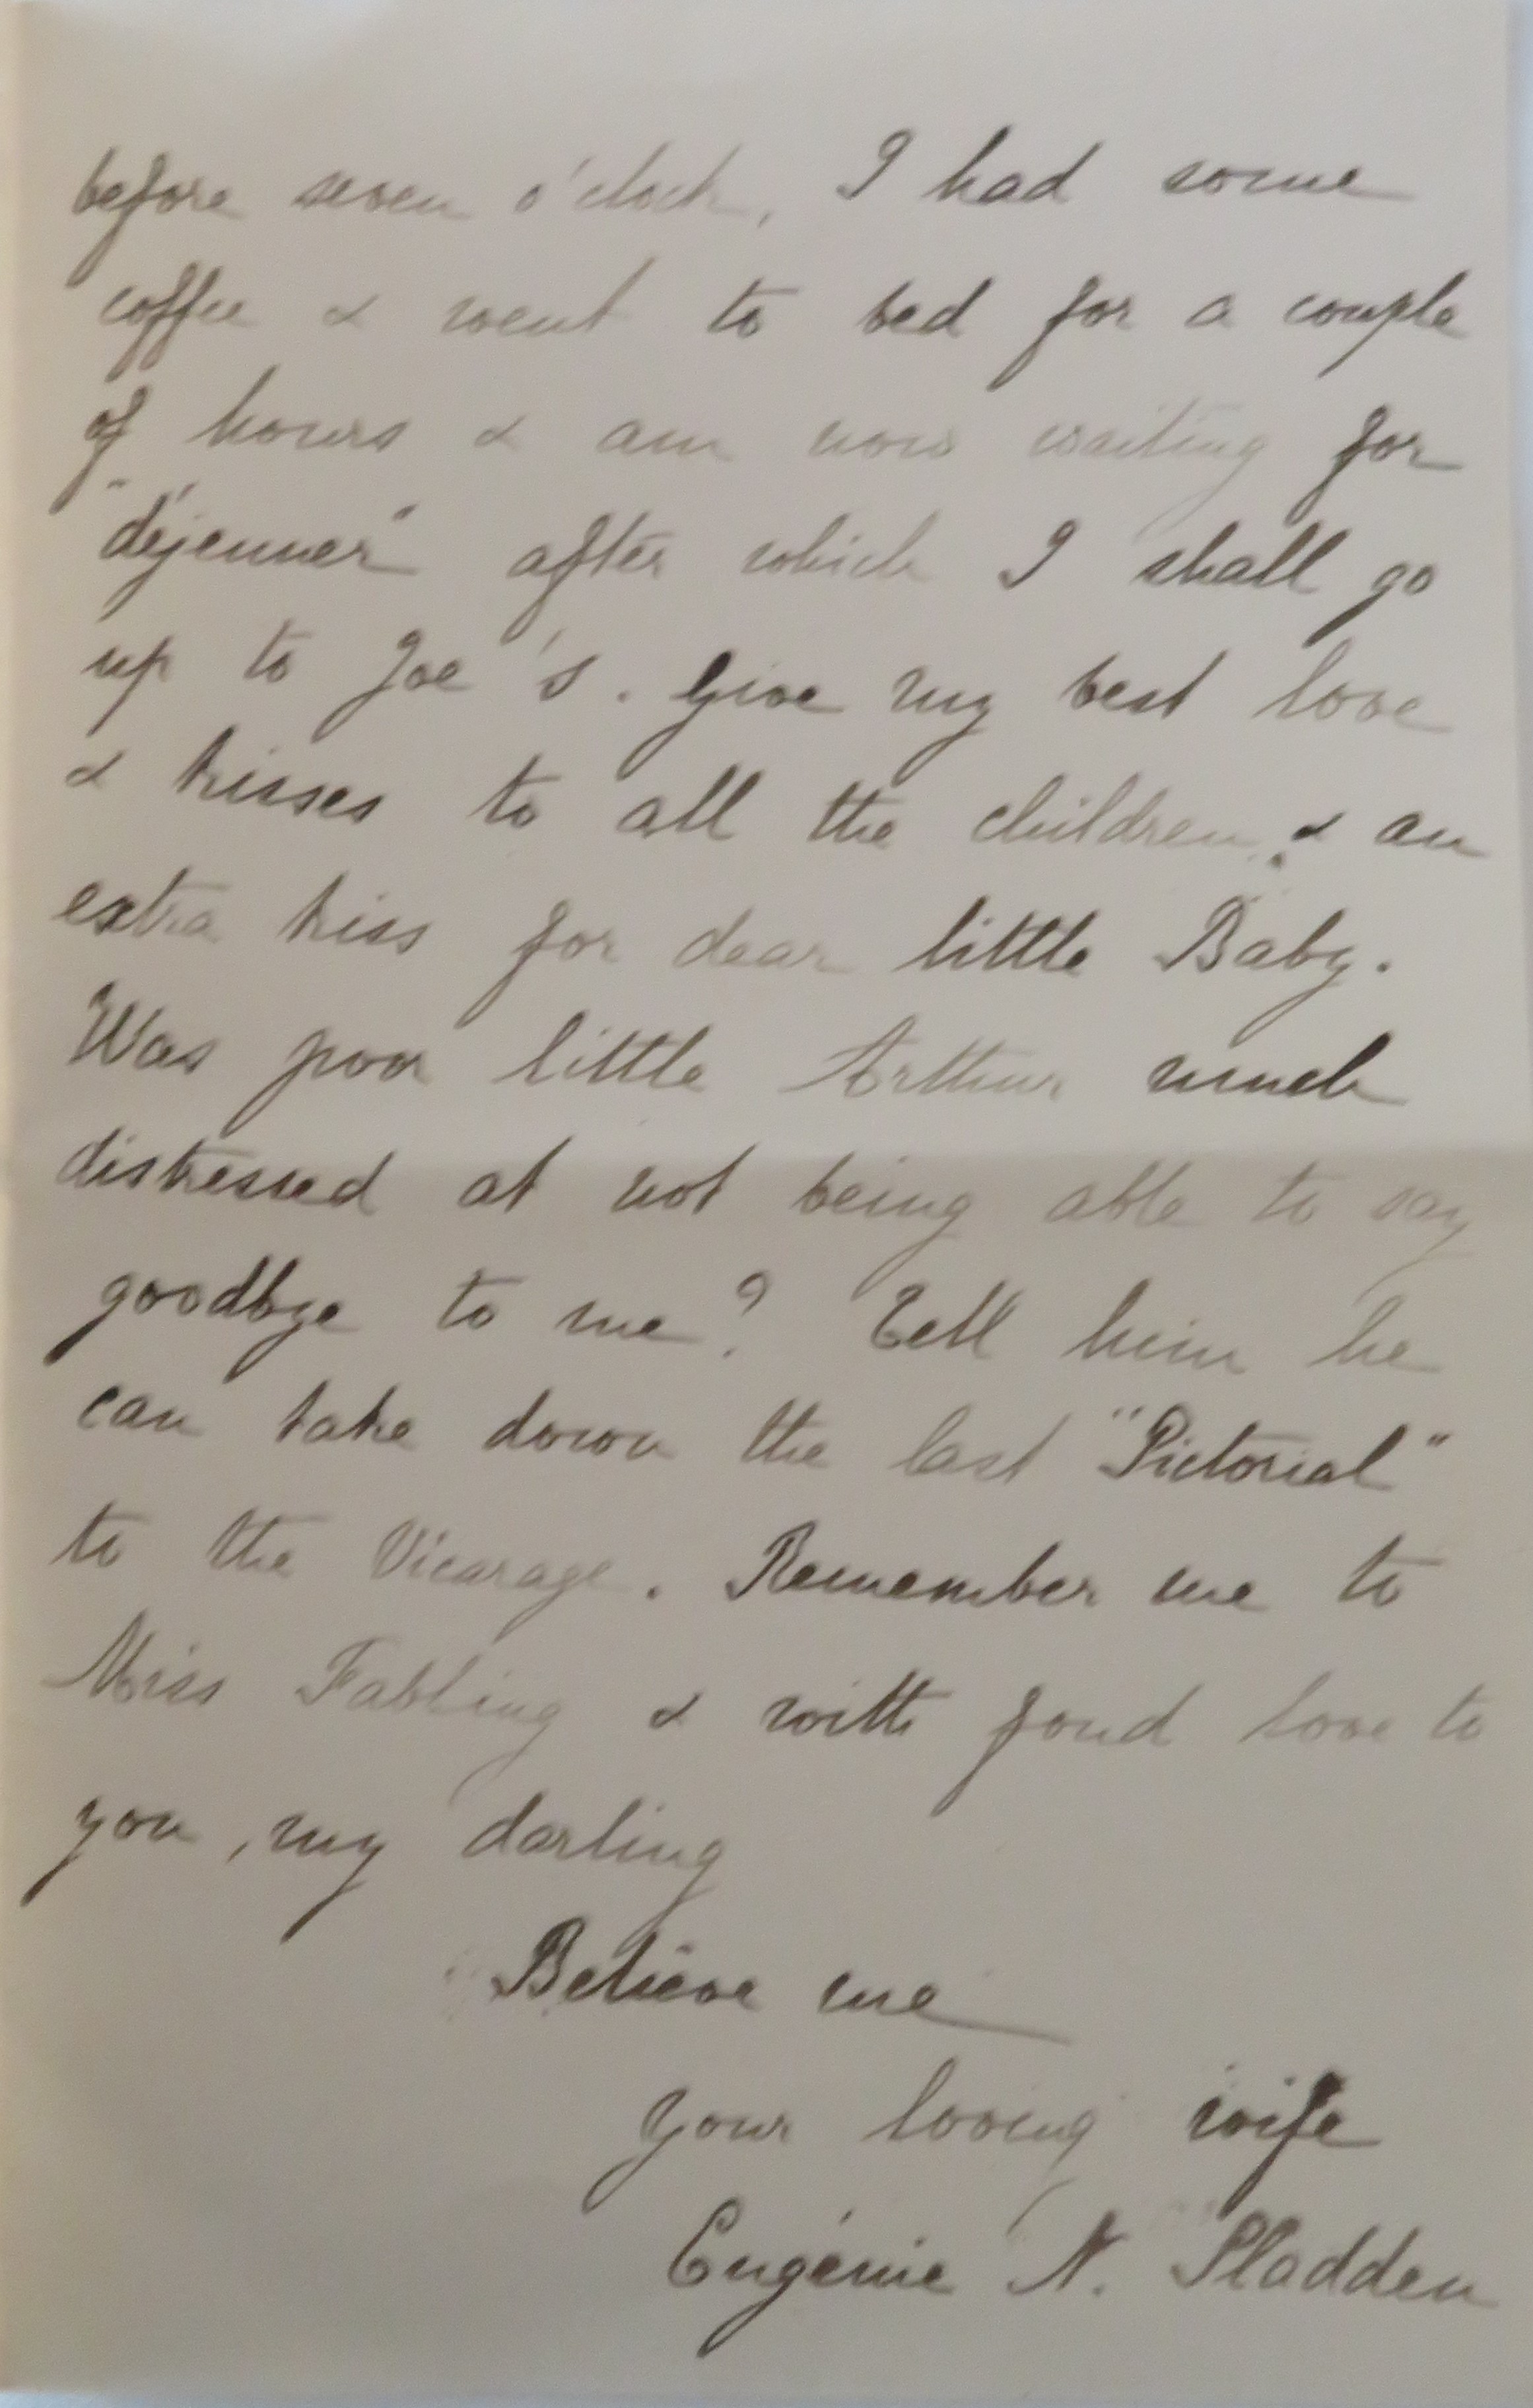 before seven o'clock, I had some
coffee & went to bed for a couple
of hours & am now waiting for
"déjeuner" after which I shall go
up to Joe's. Give my best love
& kisses to all the children, & an
extra kiss for dear little Baby.
Was poor little Arthur much
distressed at not being able to say
goodbye to me? Tell him he
can take down the last "Pictorial"
to the Vicarage. Remember me to
Miss Fabling & with fond love to
you, my darling
Believe me
your loving wife
Eugénie N. Sladden